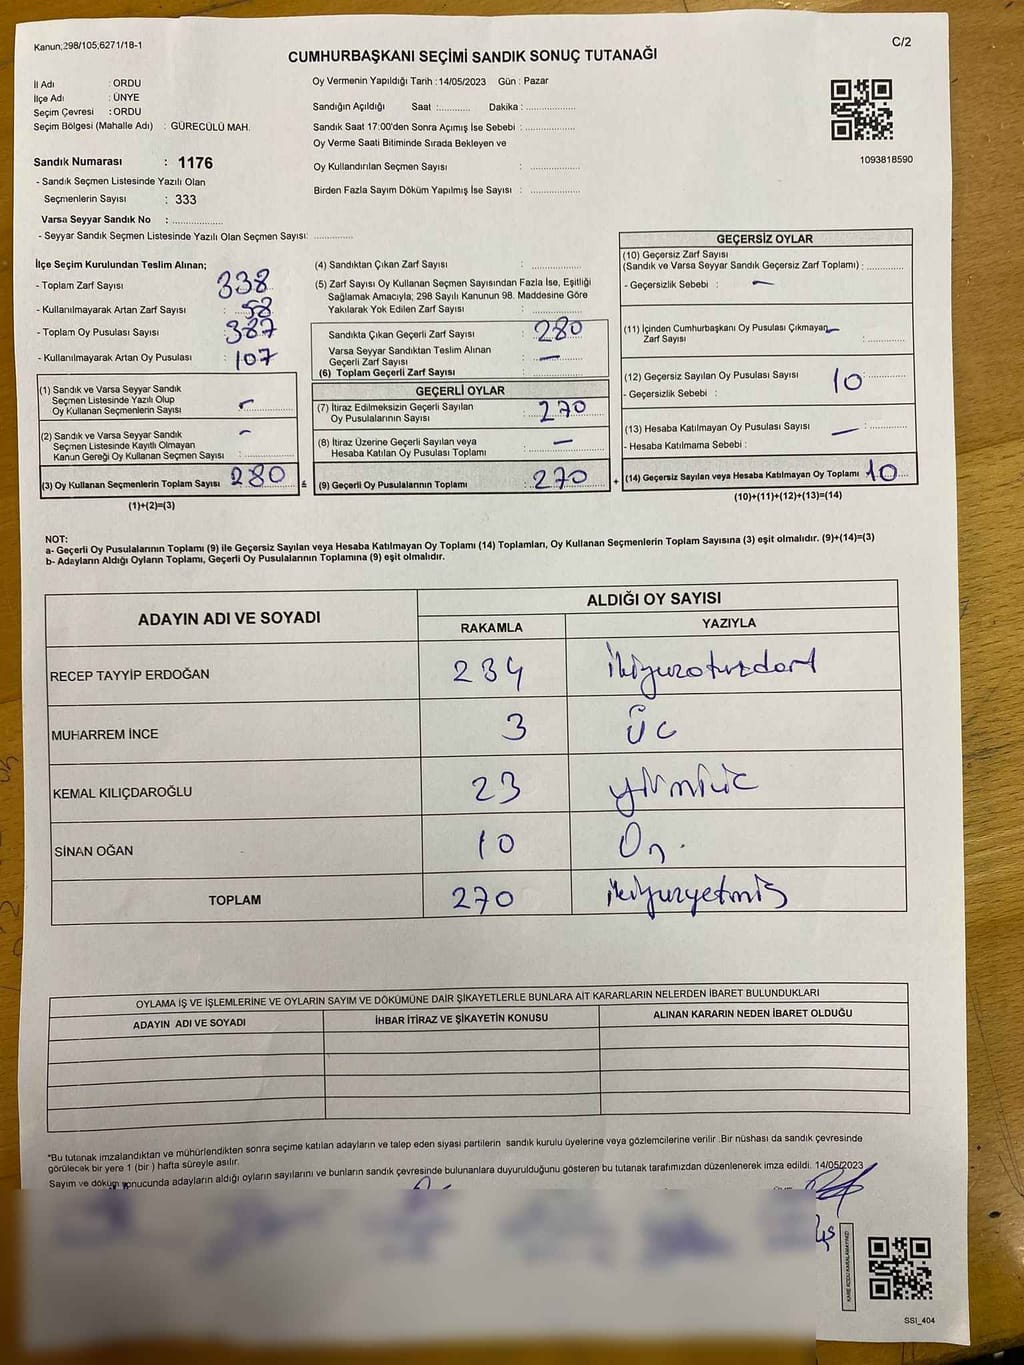 Kanun;298/105;6271/18-1
C/2
CUMHURBAŞKANI SEÇİMİ SANDIK SONUÇ TUTANAĞI
İl Adı : ORDU
İlçe Adı : ÜNYE
Seçim Çevresi : ORDU
Seçim Bölgesi (Mahalle Adı) : GÜRECÜLÜ MAH.
Sandık Numarası : 1176
- Sandık Seçmen Listesinde Yazılı Olan
Seçmenlerin Sayısı : 333
Varsa Seyyar Sandık No : ..............
- Seyyar Sandık Seçmen Listesinde Yazılı Olan Seçmen Sayısı: ............
Oy Vermenin Yapıldığı Tarih : 14/05/2023 Gün : Pazar
Sandığın Açıldığı Saat :........... Dakika : ................
Sandık Saat 17:00'den Sonra Açımış İse Sebebi : ................
Oy Verme Saati Bitiminde Sırada Bekleyen ve
Oy Kullandırılan Seçmen Sayısı : ................
Birden Fazla Sayım Döküm Yapılmış İse Sayısı : ................
1093818590
İlçe Seçim Kurulundan Teslim Alınan;
- Toplam Zarf Sayısı : 338
- Kullanılmayarak Artan Zarf Sayısı : 58
- Toplam Oy Pusulası Sayısı : 387
- Kullanılmayarak Artan Oy Pusulası : 107
(1) Sandık ve Varsa Seyyar Sandık
Seçmen Listesinde Yazılı Olup
Oy Kullanan Seçmenlerin Sayısı : -
(2) Sandık ve Varsa Seyyar Sandık
Seçmen Listesinde Kayıtlı Olmayan
Kanun Gereği Oy Kullanan Seçmen Sayısı : -
(3) Oy Kullanan Seçmenlerin Toplam Sayısı : 280
(1)+(2)=(3)
(4) Sandıktan Çıkan Zarf Sayısı : ................
(5) Zarf Sayısı Oy Kullanan Seçmen Sayısından Fazla İse, Eşitliği
Sağlamak Amacıyla; 298 Sayılı Kanunun 98. Maddesine Göre
Yakılarak Yok Edilen Zarf Sayısı : ................
Sandıkta Çıkan Geçerli Zarf Sayısı : 280
Varsa Seyyar Sandıktan Teslim Alınan
Geçerli Zarf Sayısı : -
(6) Toplam Geçerli Zarf Sayısı : ................
GEÇERLİ OYLAR
(7) İtiraz Edilmeksizin Geçerli Sayılan
Oy Pusulalarının Sayısı : 270
(8) İtiraz Üzerine Geçerli Sayılan veya
Hesaba Katılan Oy Pusulası Toplamı : -
(9) Geçerli Oy Pusulalarının Toplamı : 270
GEÇERSİZ OYLAR
(10) Geçersiz Zarf Sayısı
(Sandık ve Varsa Seyyar Sandık Geçersiz Zarf Toplamı) : ............
- Geçersizlik Sebebi : -
(11) İçinden Cumhurbaşkanı Oy Pusulası Çıkmayan -
Zarf Sayısı : ............
(12) Geçersiz Sayılan Oy Pusulası Sayısı : 10
- Geçersizlik Sebebi :
(13) Hesaba Katılmayan Oy Pusulası Sayısı - : ............
- Hesaba Katılmama Sebebi :
+ (14) Geçersiz Sayılan veya Hesaba Katılmayan Oy Toplamı 10
(10)+(11)+(12)+(13)=(14)
NOT:
a- Geçerli Oy Pusulalarının Toplamı (9) ile Geçersiz Sayılan veya Hesaba Katılmayan Oy Toplamı (14) Toplamları, Oy Kullanan Seçmenlerin Toplam Sayısına (3) eşit olmalıdır. (9)+(14)=(3)
b- Adayların Aldığı Oyların Toplamı, Geçerli Oy Pusulalarının Toplamına (9) eşit olmalıdır.
ADAYIN ADI VE SOYADI ALDIĞI OY SAYISI
RAKAMLA YAZIYLA
RECEP TAYYİP ERDOĞAN 234 İkiyuzotuzdört
MUHARREM İNCE 3 Üc
KEMAL KILIÇDAROĞLU 23 yirmiüc
SİNAN OĞAN 10 On.
TOPLAM 270 ikiyuzyetmiş
OYLAMA İŞ VE İŞLEMLERİNE VE OYLARIN SAYIM VE DÖKÜMÜNE DAİR ŞİKAYETLERLE BUNLARA AİT KARARLARIN NELERDEN İBARET BULUNDUKLARI
ADAYIN ADI VE SOYADI İHBAR İTİRAZ VE ŞİKAYETİN KONUSU ALINAN KARARIN NEDEN İBARET OLDUĞU
*Bu tutanak imzalandıktan ve mühürlendikten sonra seçime katılan adayların ve talep eden siyasi partilerin sandık kurulu üyelerine veya gözlemcilerine verilir .Bir nüshası da sandık çevresinde
görülecek bir yere 1 (bir ) hafta süreyle asılır.
Sayım ve döküm sonucunda adayların aldığı oyların sayılarını ve bunların sandık çevresinde bulunanlara duyurulduğunu gösteren bu tutanak tarafımızdan düzenlenerek imza edildi. 14/05/2023
KARE KODU KARALAMAYINIZ!
SSI_404